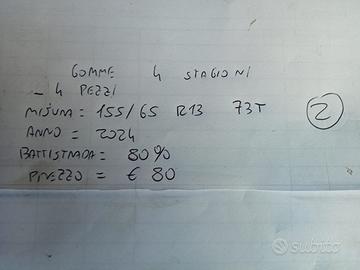 GOMME 4 STAGIONI
- 4 PEZZI
MISURA = 155/65 R13 73T
2
ANNO = 2024
BATTISTRADA = 80%
PREZZO = € 80
subito